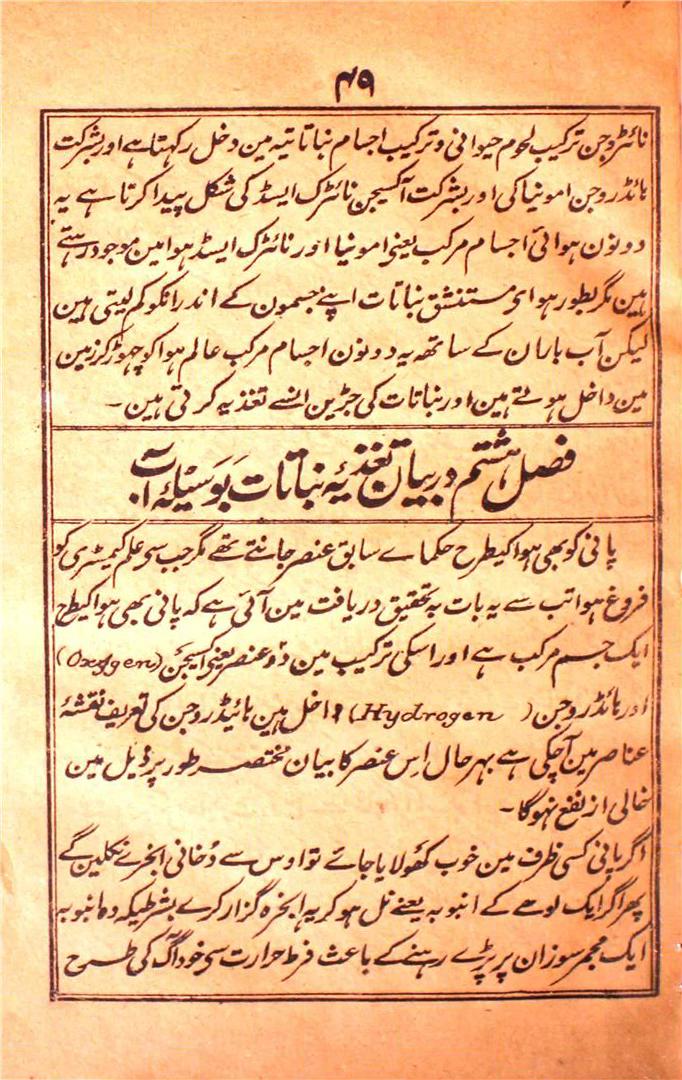 ۴۹
نائٹروجن ترکیب لحوم حیوانی و ترکیب اجسام نباتاتیہ مین دخل رکہتا ہے اور بشرکت
ہائڈروجن امونیا کی اور بشرکت آکسیجن نائٹرک ایسڈ کی شکل پیدا کرتا ہے یہ
دونون ہوائی اجسام مرکب یعنی امونیا اور نائٹرک ایسڈ ہوا مین موجود رہتے
ہین مگر بطور ہوای مستنشق نباتات اپنے جسمون کے اندر انکو کم لیتی ہین
لیکن آب باران کے ساتھ یہ دونون اجسام مرکب عالم ہوا کو چھوڑ کر زمین
مین داخل ہوتے ہین اور نباتات کی جڑین انسے تغذیہ کرتی ہین ۔
فصل ہشتم در بیان تغذیۂ نباتات بوسیلۂ آب
پانی کو بھی ہوا کیطرح حکماے سابق عنصر جانتے تھے مگر جب سی علم کیمسٹری کو
فروغ ہوا تب سے یہ بات بہ تحقیق دریافت مین آئی ہے کہ پانی بھی ہوا کیطرح
ایک جسم مرکب ہے اور اسکی ترکیب مین دو عنصر یعنی اکسیجن (Oxygen)
اور ہائڈروجن (Hydrogen) داخل ہین ہائیڈروجن کی تعریف نقشۂ
عناصر مین آچکی ہے بہر حال اِس عنصر کا بیان مختصر طور پر ذیل مین
خالی از نفع نہوگا ۔
اگر پانی کسی ظرف مین خوب کھولایا جائے تو اوس سے دُخانی ابخرے نکلین گے
پھر اگر ایک لوہے کے انبوبہ یعنے نل ہو کر یہ ابخرہ گزار کرے بشرطیکہ وہ انبوبہ
ایک مجمر سوزان پر پڑے رہنے کے باعث فرط حرارت سی خود آگ کی طرح